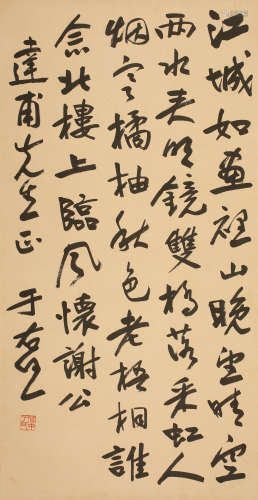 江城如畫裡山晚望晴空
兩水夾明鏡雙橋落采虹人
烟寒橘柚秋色老梧桐誰
念北樓上臨風懷謝公
達甫先生正 于右任